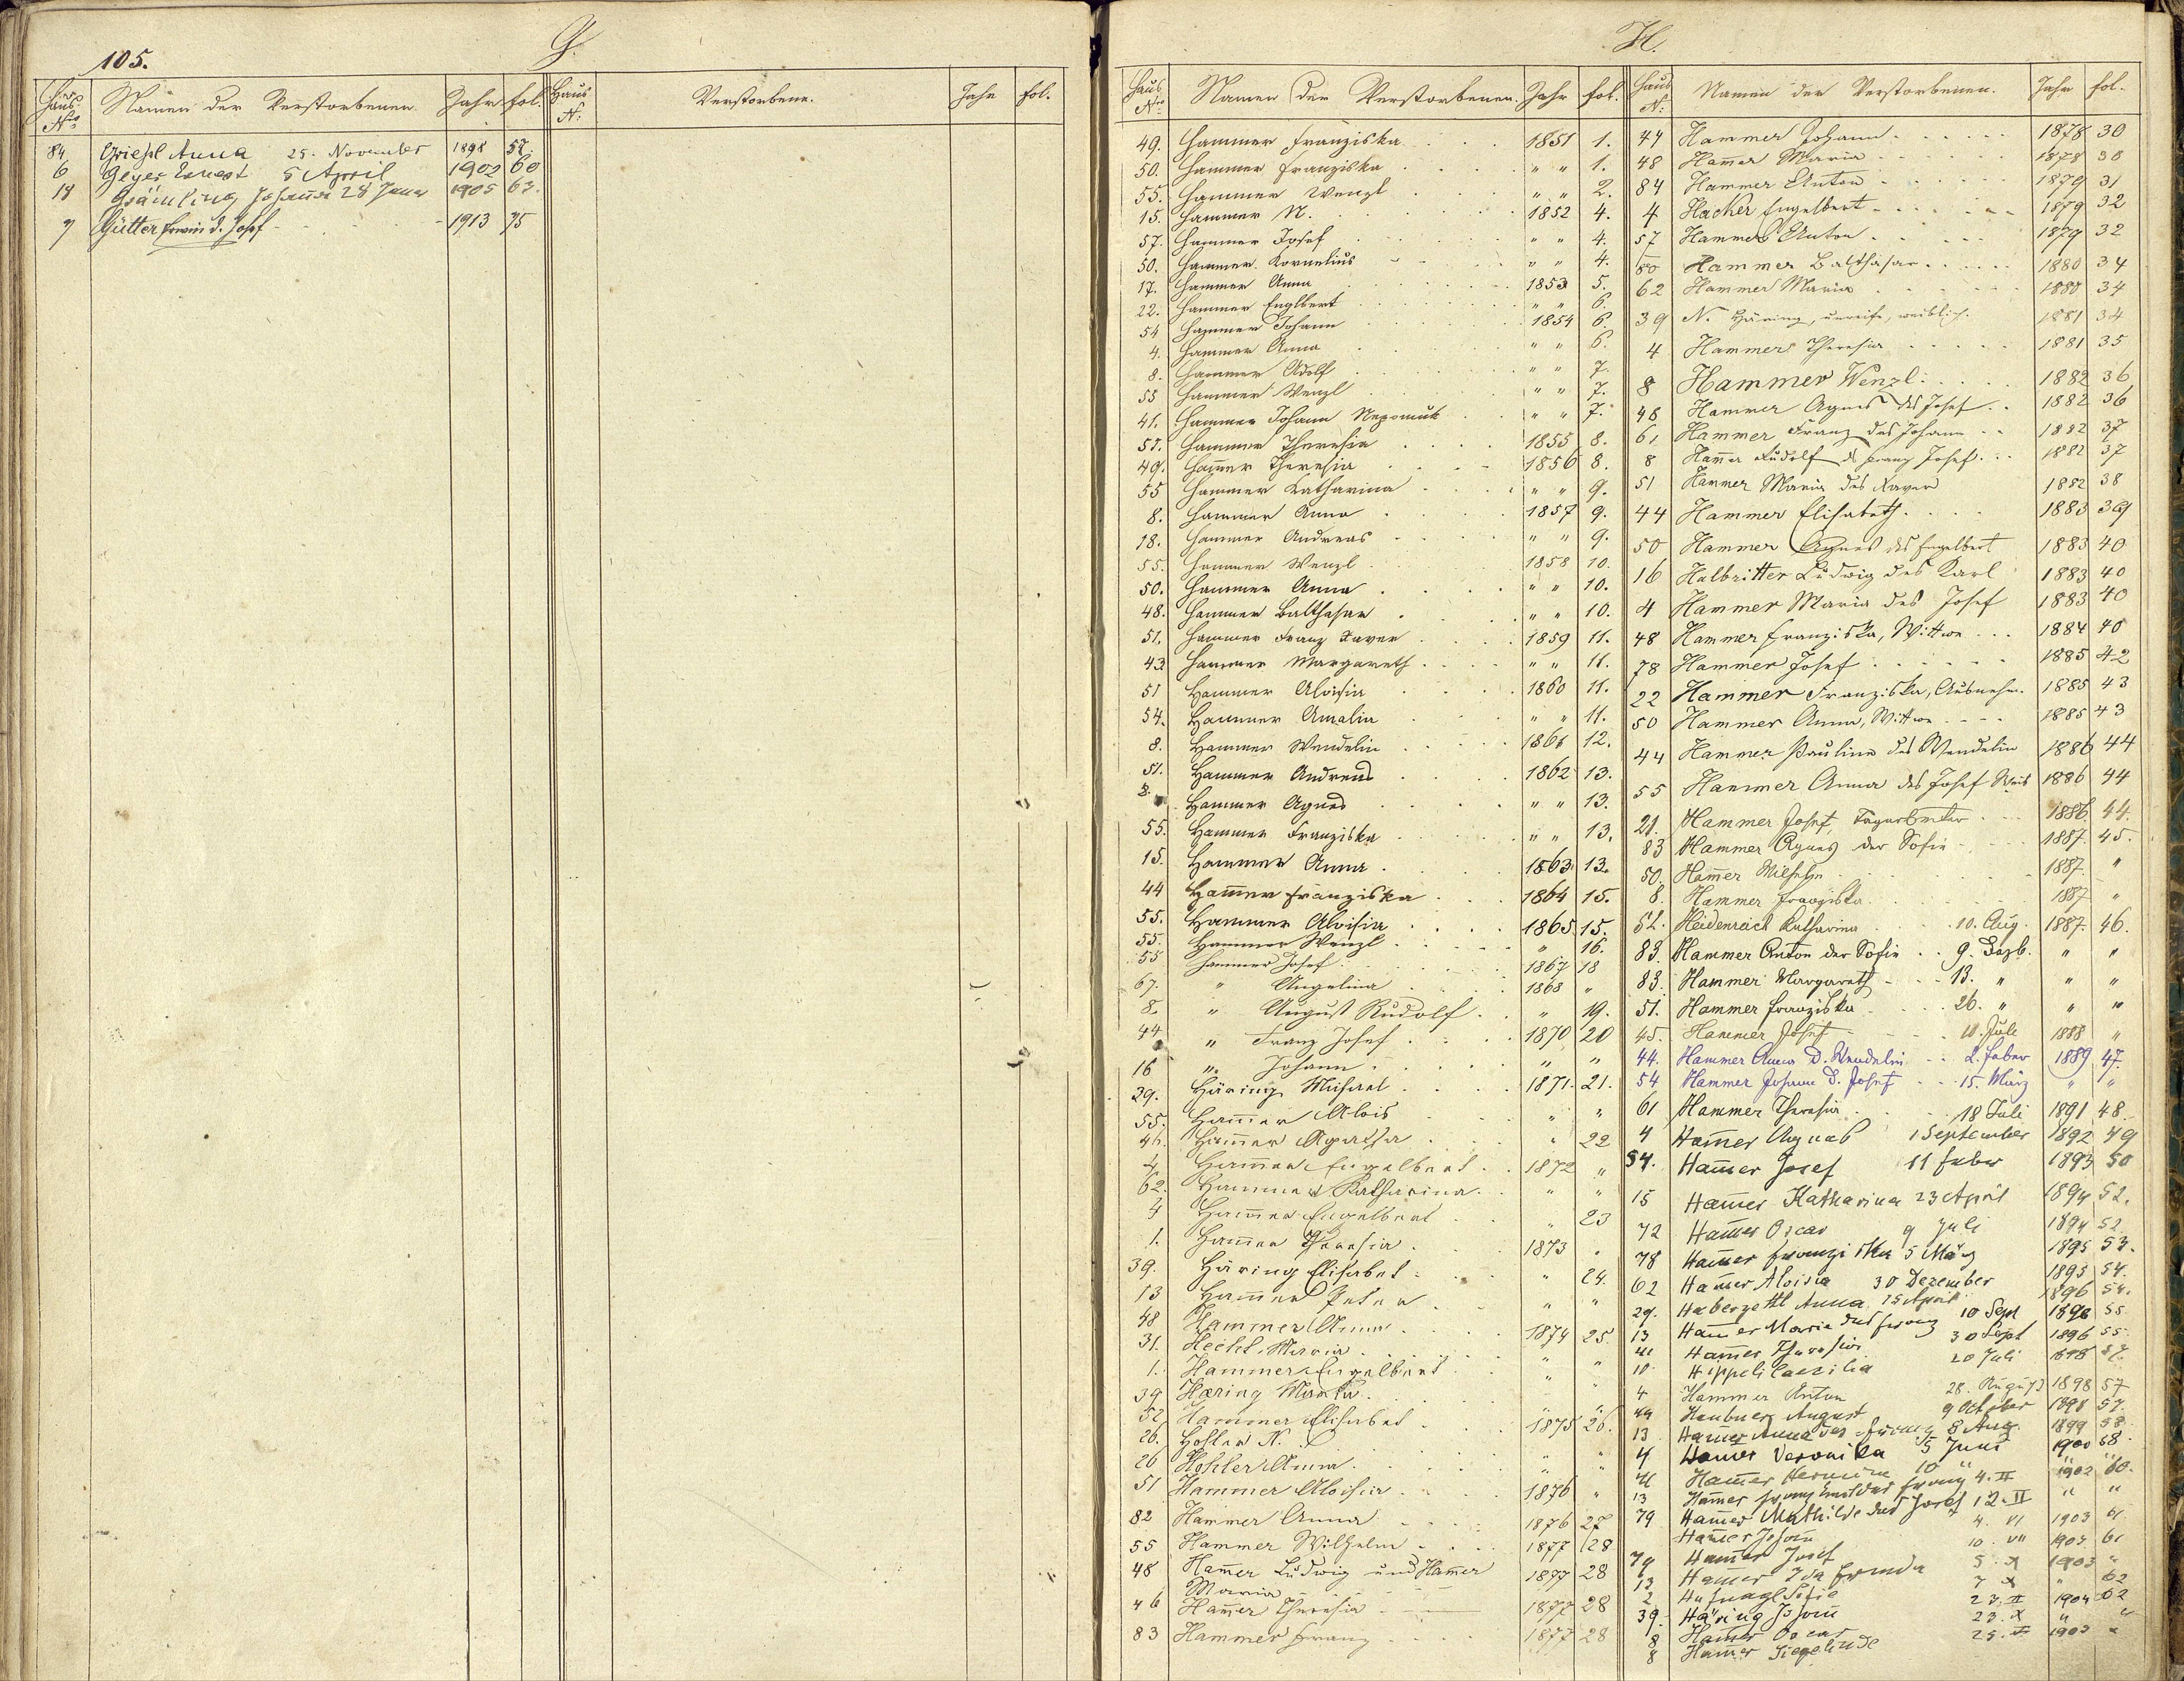 105.
G.
Haus Nro Namen der Verstorbenen Jahr fol. Haus N: Verstorbene. Jahr fol.
84 Anna 25. November 1898 57.
6 Geyer Ernest 5 April 1902 60
18 Johanna 28 1905 63.
7 Gütter Erwin d. Josef 1913 75
H.
Haus Nro Namen der Verstorbenen. Jahr fol.
49. Hammer Franziska 1851 1.
50. Hammer Franziska " " 1.
55. Hammer Wenzl " " 2.
15. Hammer N. 1852 4.
57. Hammer Josef " " 4.
50. Hammer Kornelius " " 4.
17. Hammer Anna 1853 5.
22. Hammer Englbert " " 6.
54 Hammer Johann 1854 6.
4. Hammer Anna " " 6.
8. Hammer Adolf " " 7.
55 Hammer Wenzl " " 7.
41. Hammer Johann Nepomuk " " 7.
57. Hammer Theresia 1855 8.
49. Hammer Theresia 1856 8.
55 Hammer Katharina " " 9.
8. Hammer Anna 1857 9.
18. Hammer Andreas " " 9.
55. Hammer Wenzl 1858 10.
50. Hammer Anna " " 10.
48. Hammer Balthasar " " 10.
51. Hammer Franz Xaver 1859 11.
43 Hammer Margareth " " 11.
51 Hammer Aloisia 1860 11.
54. Hammer Amalia " " 11.
8. Hammer Wendelin 1861 12.
51. Hammer Andreas 1862 13.
8. Hammer Agnes " " 13.
55. Hammer Franziska " " 13.
15. Hammer Anna 1863 13.
44 Ham̄er Franziska 1864 15.
55. Hammer Aloisia 1865 15.
55. Hammer Wenzl " 16.
55 Hammer Josef 1867 18
67. " Angelina 1868 "
8. " August Rudolf " 19.
44 " Franz Josef 1870 20
16 " Johann " "
39. Häring Michael 1871. 21.
55. Ham̄er Alois " "
46. Ham̄er Agatha " 22
Ham̄er Engelbert 1872 "
62. Hammer Katharina " "
4 Ham̄er Engelbert " 23
1. Ham̄er Theresia 1873 "
39. Häring Elisabet " 24.
13 Ham̄er Peter " "
48 Hammer Anna 1874 25
31. Hecht Maria " "
1. Hammer Engelbert " "
39 Hæring Maria " "
52 Hammer Elisabet 1875 26.
26. Hohler N.
26 Hohler Anna " "
51 Hammer Aloisia 1876 "
82 Hammer Anna 1876 27
55 Hammer Wilhelm 1877 28
48 Ham̄er Ludwig und Ham̄er Maria 1877 28
46 Ham̄er Theresia 1877 28
83 Hammer Franz 1877 28
Haus N: Namen der Verstorbenen. Jahr fol.
44 Hammer Johann 1878 30
48 Ham̄er Maria 1878 30
84 Hammer Anton 1879 31
4 Hacker Engelbert 1879 32
57 Hammer Anton 1879 32
80 Hammer Balthasar 1880 34
62 Hammer Maria 1880 34
39 N. Häring, unreife, weiblich. 1881 34
4 Hammer Theresia 1881 35
8 Hammer Wenzl 1882 36
48 Hammer Agnes des Josef 1882 36
61 Hammer Franz des Johann 1882 37
8 Ham̄er Rudolf d. Franz Josef 1882 37
51 Hammer Maria des Xaver 1882 38
44 Hammer Elisabeth 1883 39
50 Hammer Agnes des Engelbert 1883 40
16 Halbritter Ludwig des Karl 1883 40
4 Hammer Maria des Josef 1883 40
48 Hammer Franziska, Wittwe 1884 40
78 Hammer Josef 1885 42
22 Hammer Franziska, Ausnehm. 1885 43
50 Hammer Anna, Wittwe 1885 43
44 Hammer Pauline des Wendelin 1886 44
55 Hammer Anna des Josef Weib 1886 44
21. Hammer Josef, 1886. 44.
83 Hammer Agnes der Sofie 1887. 45.
50. Ham̄er Wilhelm 1887. "
8. Hammer Franziska 1887 "
52. Heidenreich Katharina 10. Aug. 1887. 46.
83. Hammer Anton der Sofie 9. Dezb. " "
83. Hammer Margareth 13. " " "
51. Hammer Franziska 26. " " "
45. Hammer Josef 10. Juli 1888 "
44. Hammer Anna d. Wendelin 2. Feber 1889 47.
54 Hammer Johann d. Josef 15. März " "
61 Hammer Theresia 18 Juli 1891 48.
4 Ham̄er Agnes 1 September 1892 49
54. Ham̄er Josef 11 Feber 1893 50
15 Ham̄er Katharina 23 April 1894 52.
72 Ham̄er Oscar 9 Juli 1894 52
78 Ham̄er Franziska 5 März 1895 53.
62 Ham̄er Aloisia 30 Dezember 1895 54.
29. Haberzettl Anna 15 April 1896 54.
13 Ham̄er Maria des Franz 10 Sept 1896 55
Ham̄er Theresia 30 Sept 1896 55.
10 Hippeli Caezilia 20 Juli 1898 57.
4 Hammer Anton 28. August 1898 57
44 Heubner August 9 October 1898 57.
13 Ham̄er Anna des Franz 8 Aug 1899 58.
4 Ham̄er Veronika 5 Juni 1900 58.
Ham̄er Hermine 10 " 1902 60.
13 Ham̄er Franz 4. II " "
79 Ham̄er Mathilde des Josef 12. II
Ham̄er Johann 4. VI 1903 61
79 Ham̄er Josef 10. VII 1903 61
13 Ham̄er Ida 5. X 1903 "
2 Hufnagl Sofie 7 X " 62
39. Häring Johann 23. II 1904 62
8 Ham̄er Oscar 23. X " "
8 Ham̄er Siegelinde 25. 1905 "